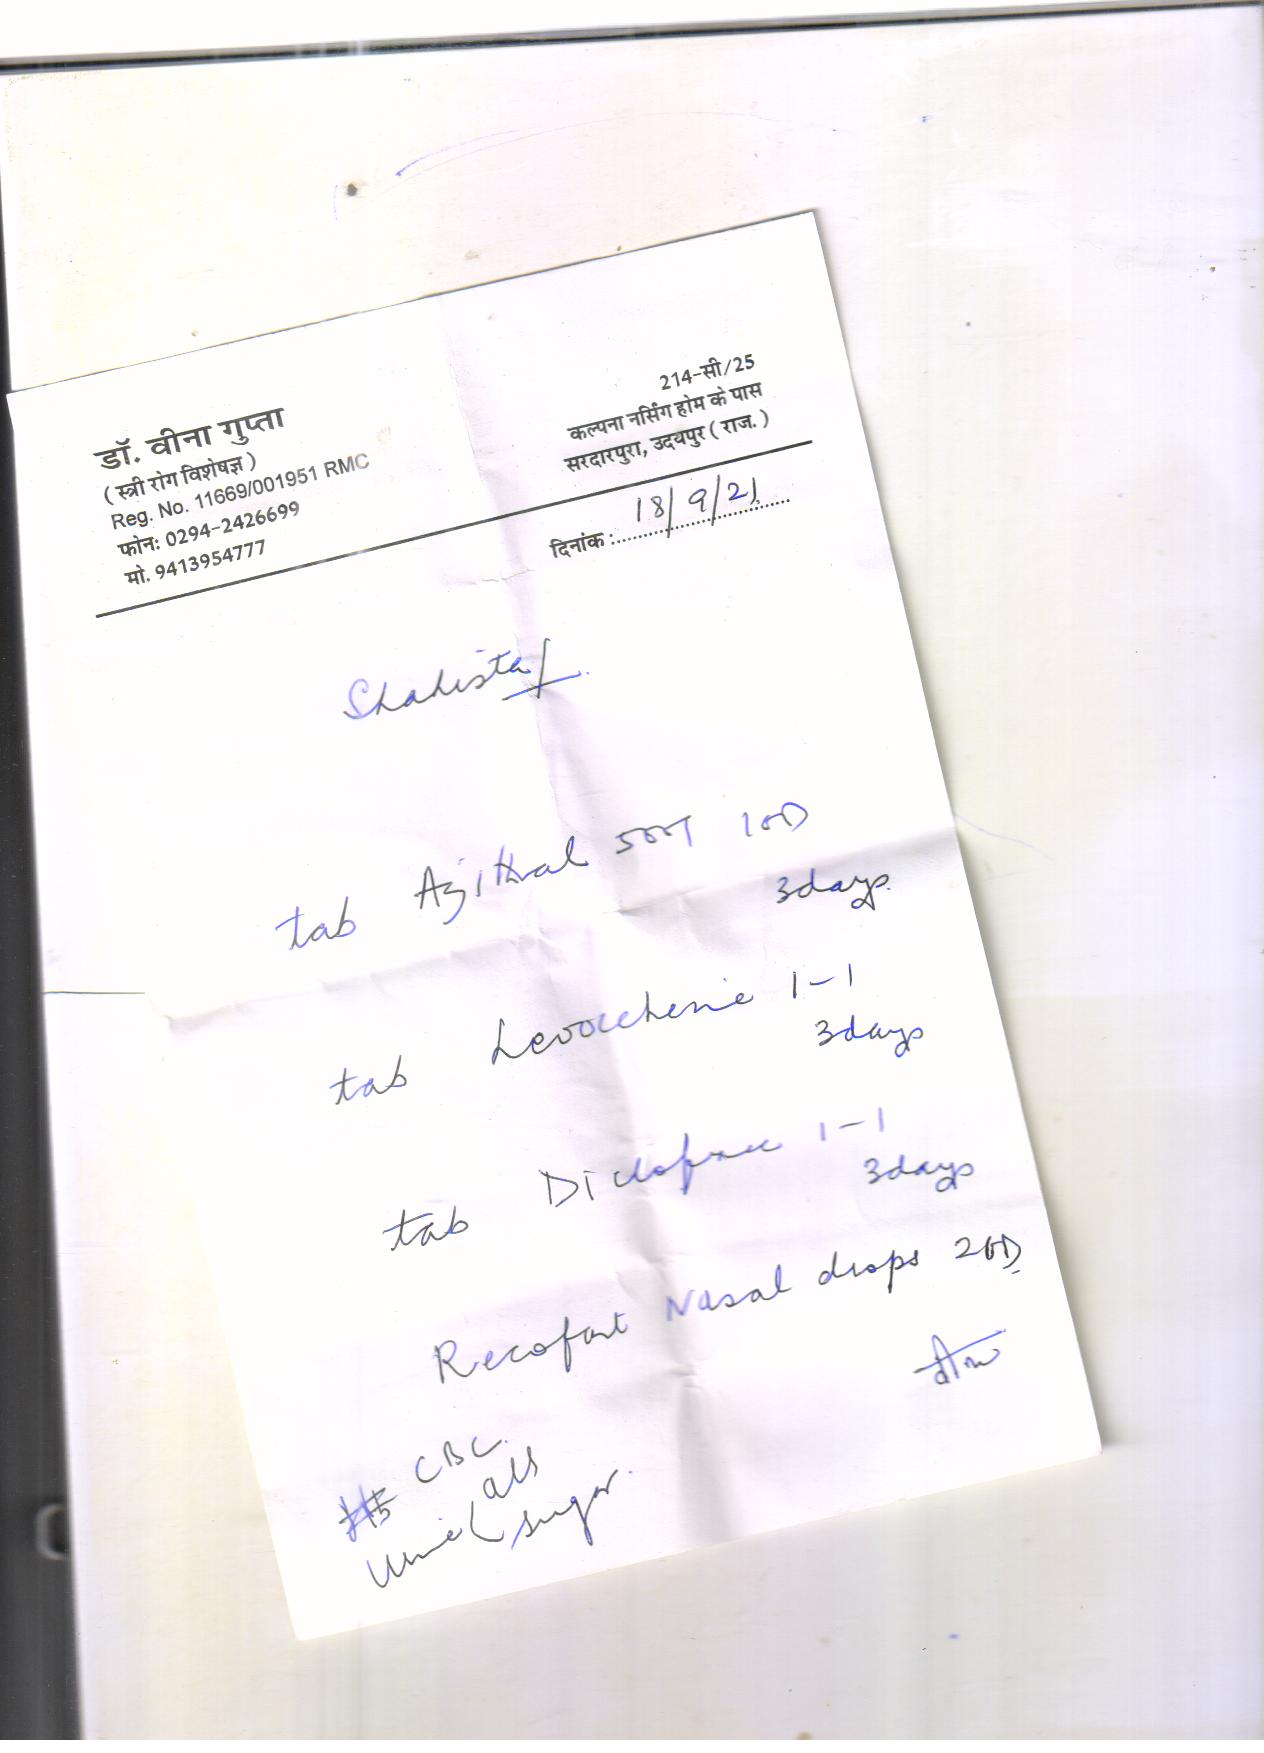 डॉ. वीना गुप्ता
( स्त्री रोग विशेषज्ञ )
Reg. No. 11669/001951 RMC
फोन: 0294-2426699
मो. 9413954777
214-सी/25
कल्पना नर्सिंग होम के पास
सरदारपुरा, उदयपुर ( राज. )
दिनांक : 18/9/21
Shahista
tab Azithral 500 1OD
3days.
tab 1-1
3days
tab Diclofenac 1-1
3days
Nasal drops
CBC
Urine sugar.